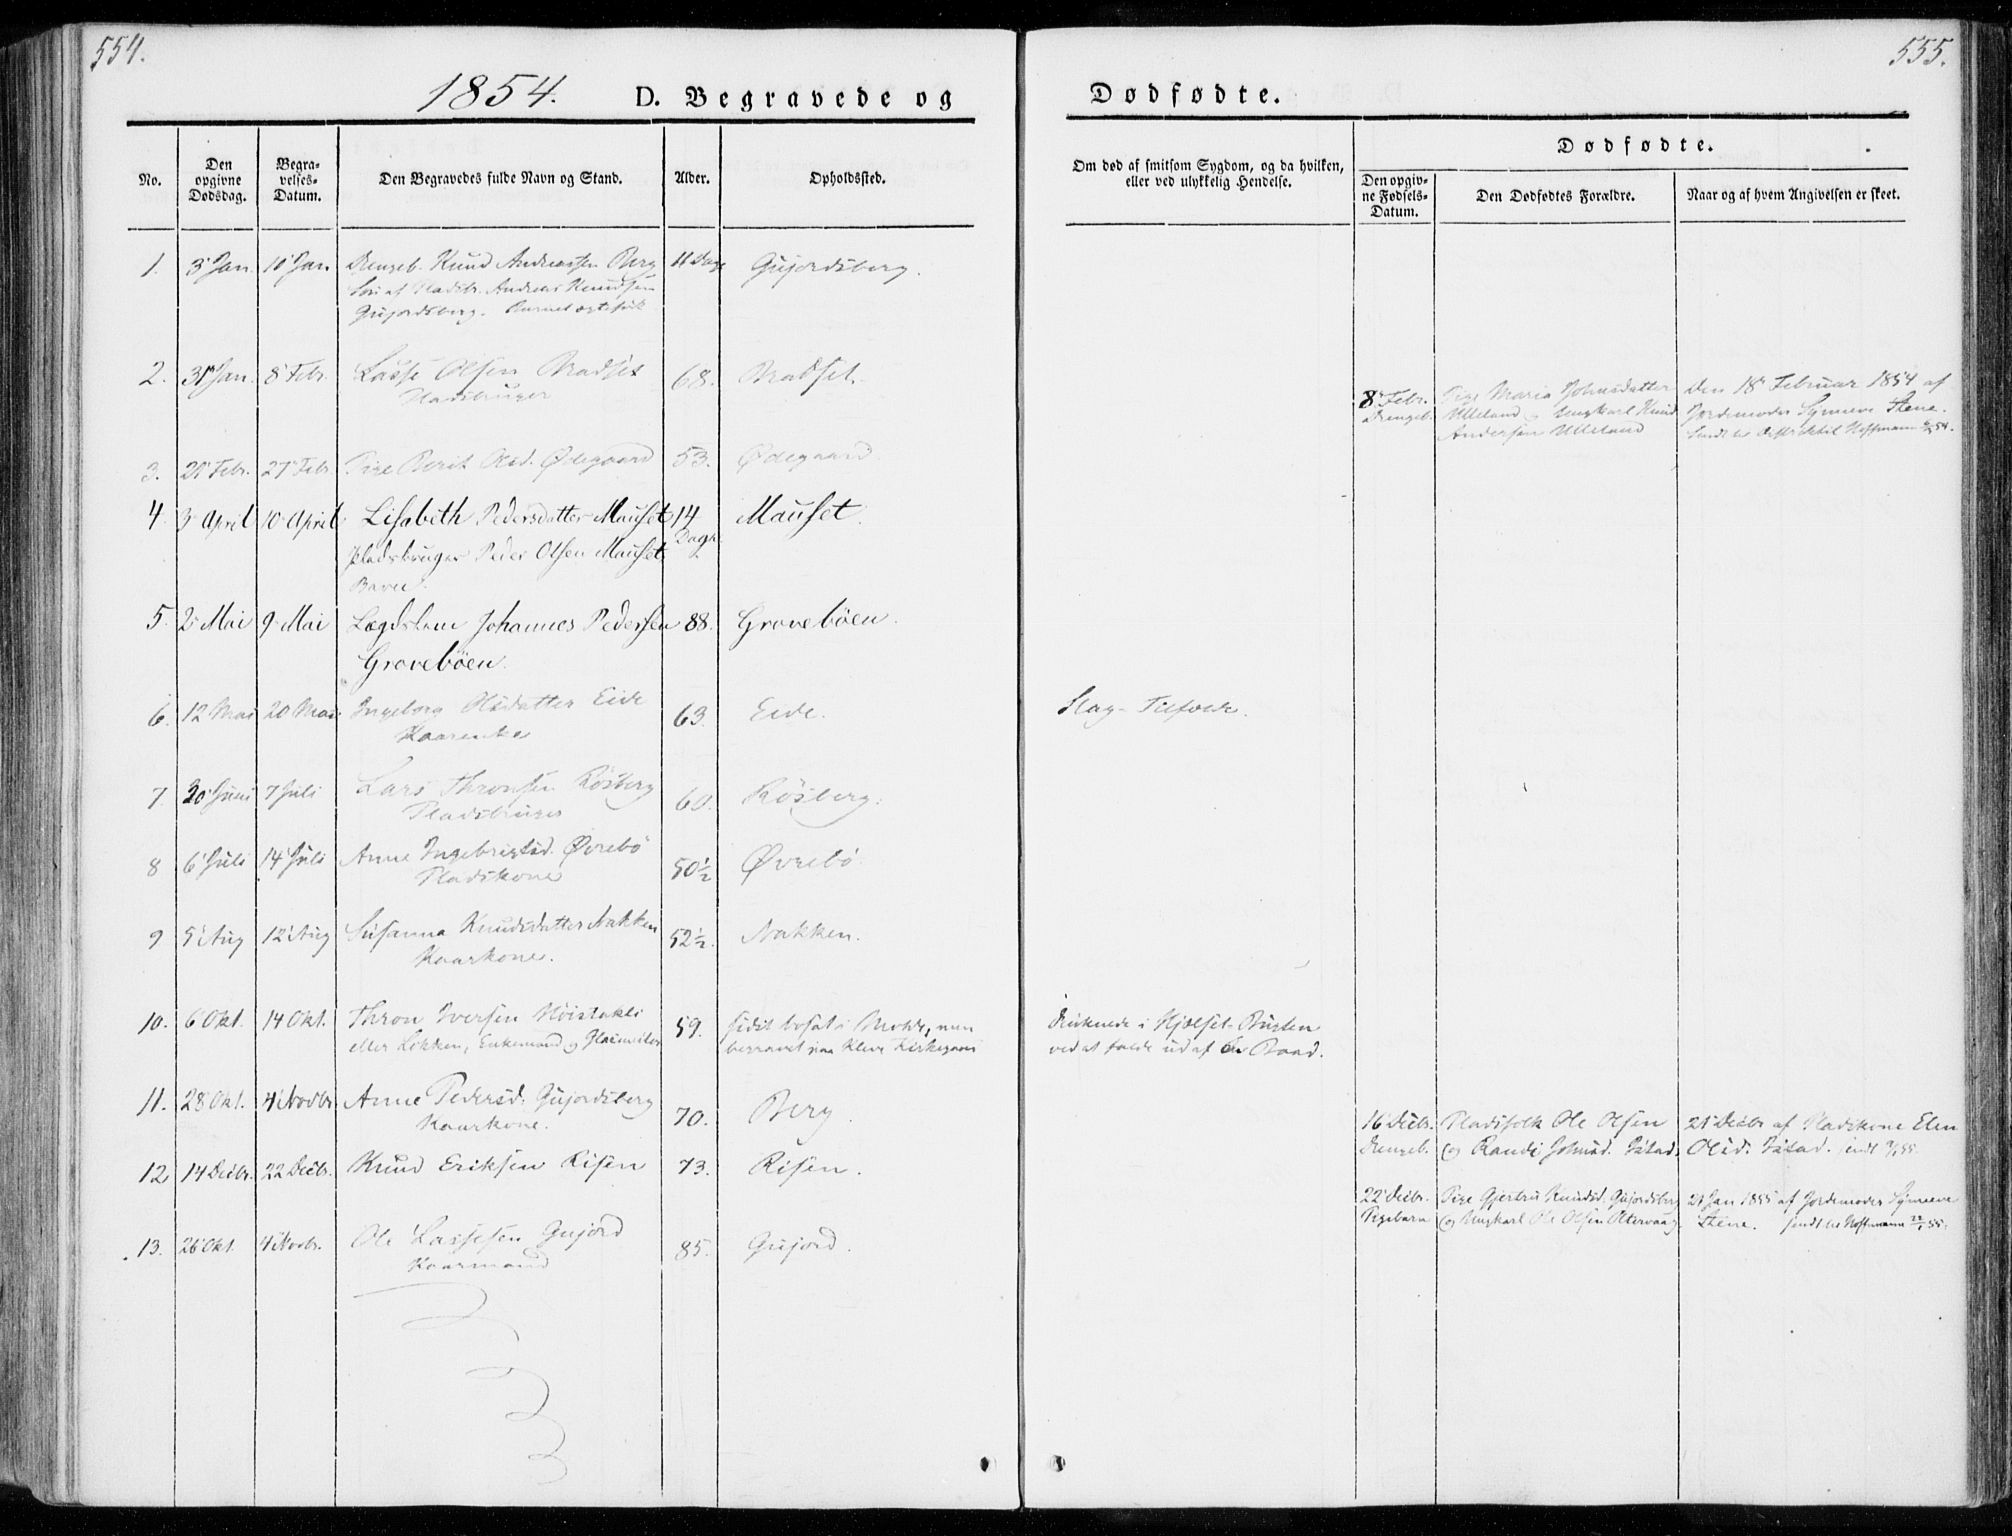 554.
1854. D. Begravede og
No.
Den opgivne Dødsdag.
Begravelses-Datum.
Den Begravedes fulde Navn og Stand.
Alder.
Opholdssted.
1. 3 Jan. 10 Jan Drengeb. Knud Andreassen Berg 11 Dage Gujordsberg.
Søn af Pladsbr. Andreas Knudsen
Gujordsberg.
2. 31 Jan. 8 Febr. Lasse Olsen Bradset 68. Bradset.
Pladsbruger
3. 20 Febr. 27 Febr. Pige Berit Olsd. Ødegaard 53. Ødegaard
4. 3 April 10 April Lisabeth Pedersdatter Mauset 14 Mauset.
Pladsbruger Peder Olsen Mauset Dage
Barn.
5. 2 Mai 9 Mai Lægdslem Johannes Pedersen 88. Groveböen.
Groveböen.
6. 12 Mai 20 Mai Ingeborg Olsdatter Eide 63. Eide.
Kaarenke
7. 30 Juni 7 Juli Lars Thronsen Rösberg 60. Rösberg.
Pladsbruger
8 6 Juli 14 Juli Anne Ingebrigtsd. Øvrebö 50½ Øvrebö.
Pladskone
9 5 Aug 12 Aug Susanna Knudsdatter Nakken 52½. Nakken.
Kaarkone.
10. 6 Okt. 14 Okt. Thron Iversen Höistakli 59. sidst bosat i Molde, men
eller Lökken, Enkemand og begravet paa Kleve Kirkegaard
11. 28 Okt. 4 Novbr Anne Pedersd. Gujordsberg 70. Berg.
Kaarkone.
12 14 Decbr. 22 Decbr. Knud Eriksen Risen 73. Risen.
13. 26 Okt. 4 Novbr. Ole Lassesen Gujord 85. Gujord.
Kaarmand
555.
Dødfødte.
Om død af smitsom Sygdom, og da hvilken,
eller ved ulykkelig Hendelse.
Dødfødte.
Den opgivne Fødsels-Datum.
Den Dødfødtes Forældre.
Naar og af hvem Angivelsen er skeet.
8 Febr. Pige Maria Johnsdatter Den 18 Februar 1854 af
Drengeb. Ulleland og Ungkarl Knud Jordemoder Synneve Stene.
Andersen Ulleland Sendt Hoffmann
Slag-Tilfælde.
Druknede i Hjelset-Bugten
ved at falde ud af en Baad.
16 Decbr. Pladsfolk Ole Olsen 21 Decbr af Pladskone Elen
Drengeb. og Randi Johnsd. Olsd. sendt
22 Decbr. Pige Gjertru Knudsd. Gujordsberg 21 Jan 1855 af Jordemoder Synneve
Pigebarn og Ungkarl Ole Olsen Stene. sendt Hoffmann